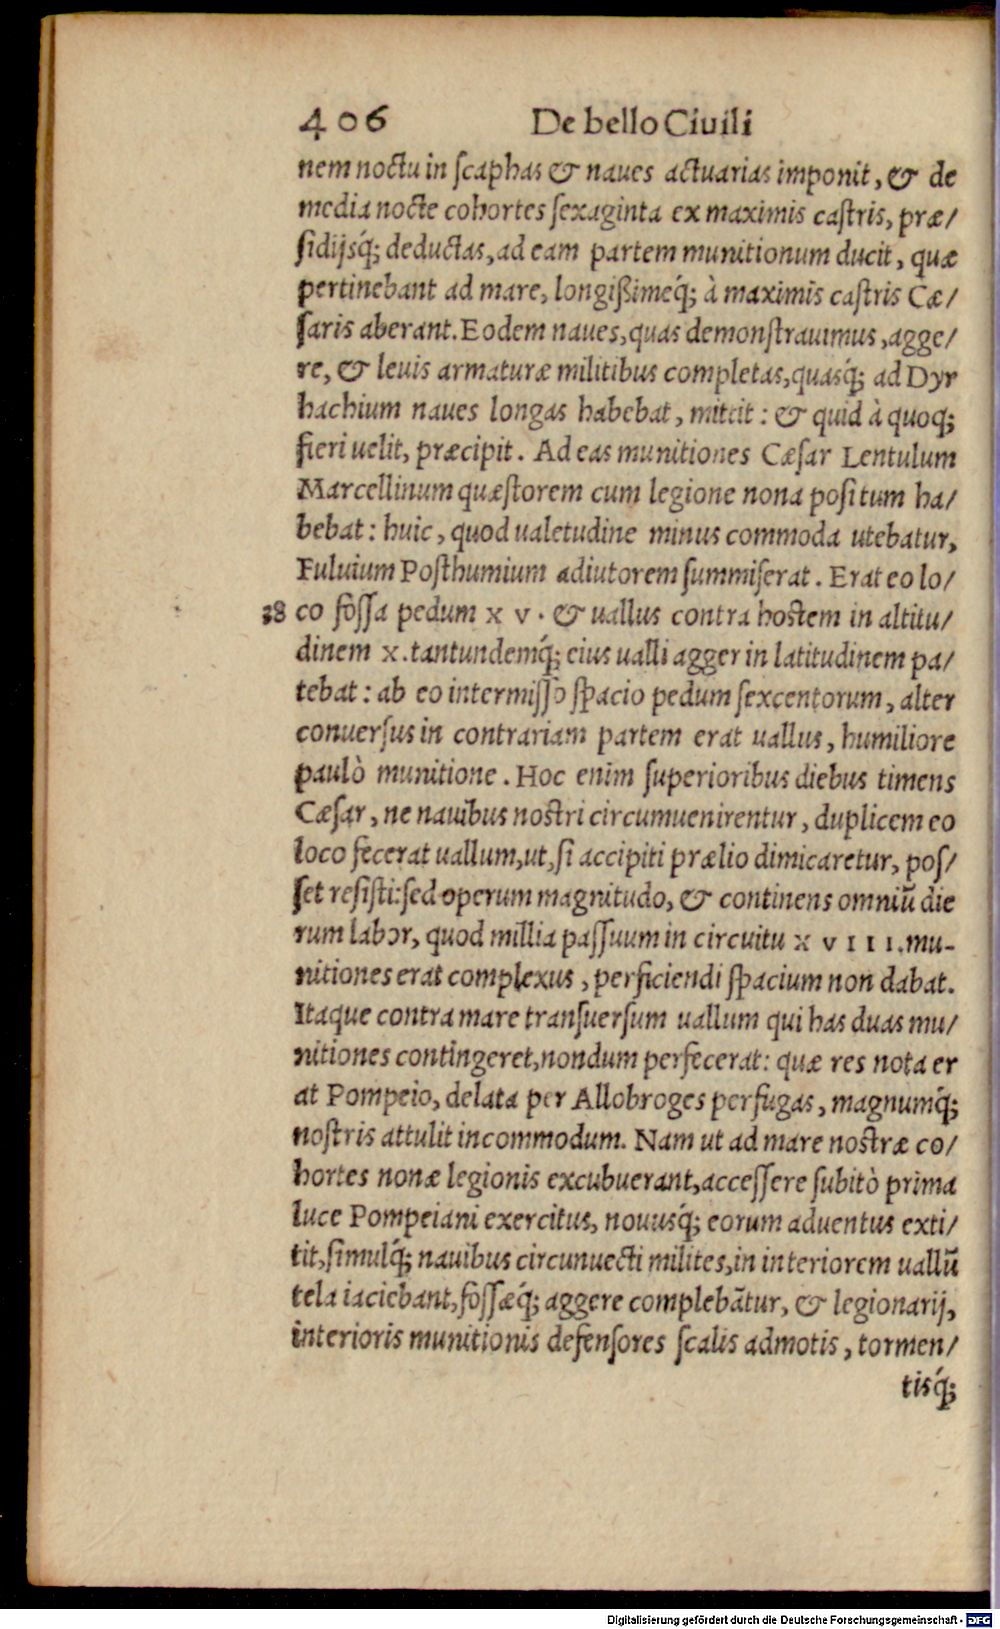 406 De bello Ciuili
nem noctu in ſcaphas & naues actuarias imponit, & de
media nocte cohortes ſexaginta ex maximis caſtris, præ/
ſidijsq́; deductas, ad eam partem munitionum ducit, quæ
pertinebant ad mare, longißimeq́; à maximis caſtris Cæ/
ſaris aberant. Eodem naues, quas demonſtrauimus, agge/
re, & leuis armaturæ militibus completas, quasq́; ad Dyr
hachium naues longas habebat, mittit: & quid à quoq;
fieri uelit, præcipit. Ad eas munitiones Cæſar Lentulum
Marcellinum quæſtorem cum legione nona poſitum ha/
bebat: huic, quod ualetudine minus commoda utebatur,
Fuluium Poſthumium adiutorem ſummiſerat. Erat eo lo/
38 co foſſa pedum x v. & uallus contra hoſtem in altitu/
dinem x. tantundemq́; eius ualli agger in latitudinem pa/
tebat: ab eo intermiſſo ſpacio pedum ſexcentorum, alter
conuerſus in contrariam partem erat uallus, humiliore
paulò munitione. Hoc enim ſuperioribus diebus timens
Cæſar, ne nauibus noſtri circumuenirentur, duplicem eo
loco fecerat uallum, ut, ſi accipiti prælio dimicaretur, poſ/
ſet reſiſti: ſed operum magnitudo, & continens omniū die
rum labor, quod millia paſſuum in circuitu x v i i i. mu-
nitiones erat complexus, perficiendi ſpacium non dabat.
Itaque contra mare tranſuerſum uallum qui has duas mu/
nitiones contingeret, nondum perfecerat: quæ res nota er
at Pompeio, delata per Allobroges perfugas, magnumq́;
noſtris attulit incommodum. Nam ut ad mare noſtræ co/
hortes nonæ legionis excubuerant, acceſſere ſubitò prima
luce Pompeiani exercitus, nouusq́; eorum aduentus exti/
tit, ſimulq́; nauibus circunuecti milites, in interiorem uallū
tela iaciebant, foſſæq́; aggere complebātur, & legionarij,
interioris munitionis defenſores ſcalis admotis, tormen/
tisq́;
Digitalisierung gefördert durch die Deutsche Forschungsgemeinschaft - DFG